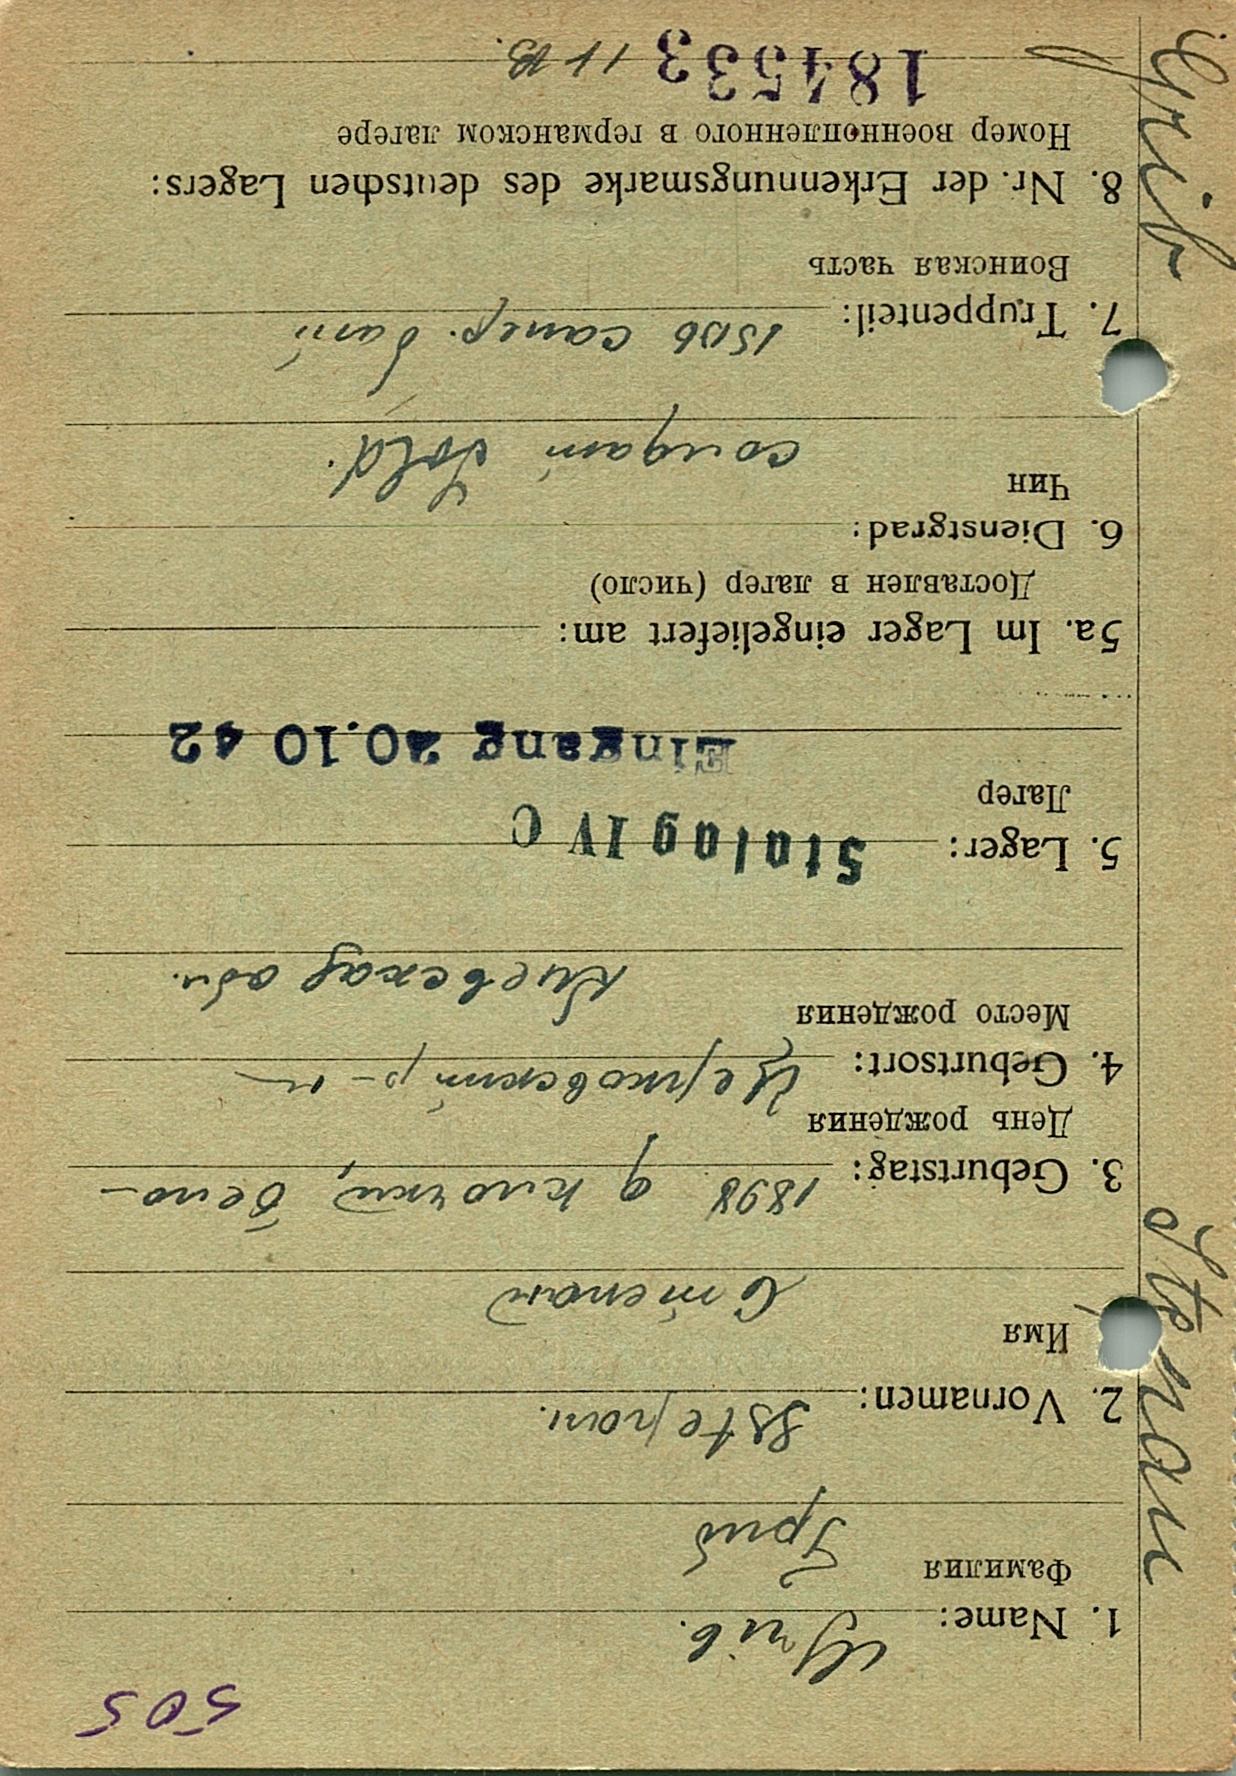 505
1. Name: Grib.
Фамилия Гриб
2. Vornamen: Sstepan.
Имя Степан
3. Geburtstag: 1898 д Ключки, Бело-
День рождения
4. Geburtsort: Церковский р-н
Место рождения Киевская обл.
5. Lager: Stalag IV C
Лагер
Eingang 20.10 42
5a. Im Lager eingeliefert am:
Доставлен в лагер (число)
6. Dienstgrad:
Чин солдат Sold.
7. Truppenteil: сапер. бат
Воинская часть
8. Nr. der Erkennungsmarke des deutschen Lagers:
Номер военнопленного в германском лагере
184533
Grib Stepan